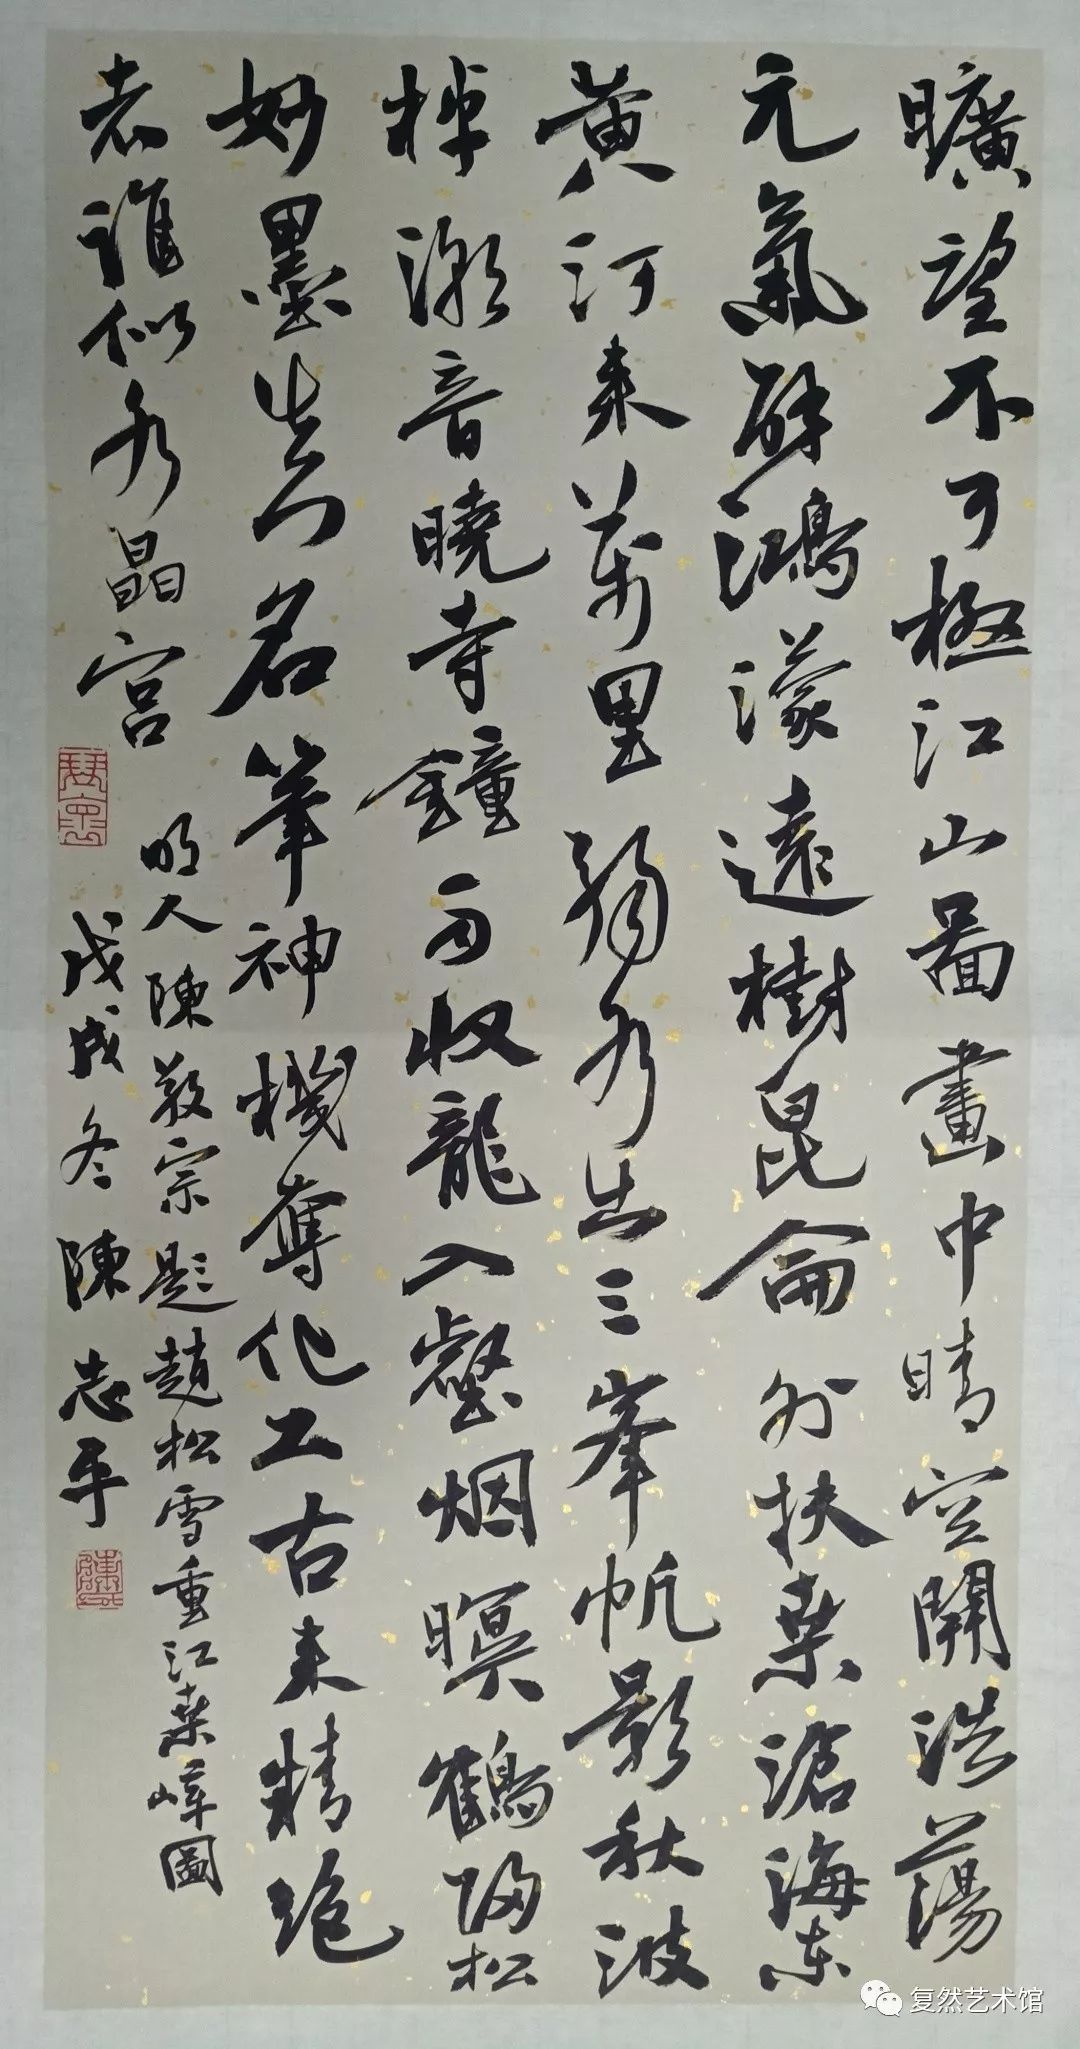 曠望不可極江山圖畫中晴空開浩蕩
元氣辟鴻濛遠樹昆侖外扶桒滄海东
黄河来萬里弱水出三峯帆影秋波
棹潮音曉寺鐘雨收龍入壑烟暝鶴歸松
妙墨出名筆神機奪化工古来精絶
者誰似水晶宮
明人陳敬宗題趙松雪重江叠嶂圖
戊戌冬陳志平
复然艺术馆